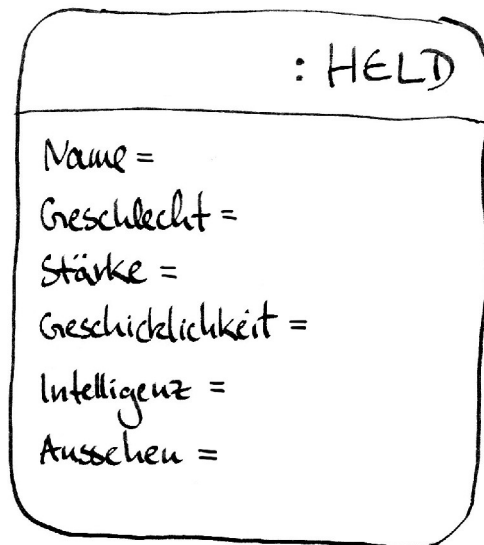 : HELD
Name =
Geschlecht =
Stärke =
Geschicklichkeit =
Intelligenz =
Aussehen =